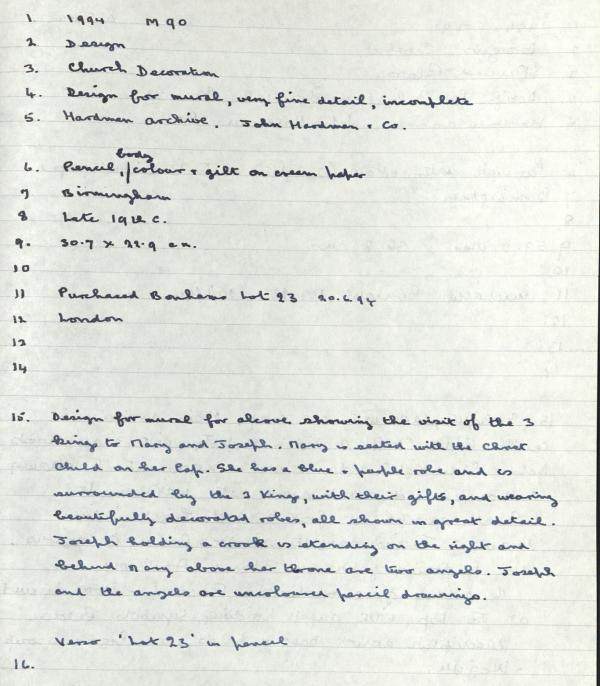 1 1994 M 90
2 Design
3. Church Decoration
4. Design for mural, very fine detail, incomplete
5. Hardman archive. John Hardman & Co.
body
6. Pencil, /colour & gilt on cream paper
7 Birmingham
8 Late 19th c.
9. 30.7 x 22.9 cm.
10
11 Purchased Bonhams Lot 23 20.6.94
12 London
13
14
15. Design for mural for alcove showing the visit of the 3
kings to Mary and Joseph. Mary is seated with the Christ
Child on her lap. She has a blue & purple robe and is
surrounded by the 3 Kings, with their gifts, and wearing
beautifully decorated robes, all shown in great detail.
Joseph holding a crook is standing on the right and
behind Mary above her throne are two angels. Joseph
and the angels are uncoloured pencil drawings.
Verso 'Lot 23' in pencil
16.